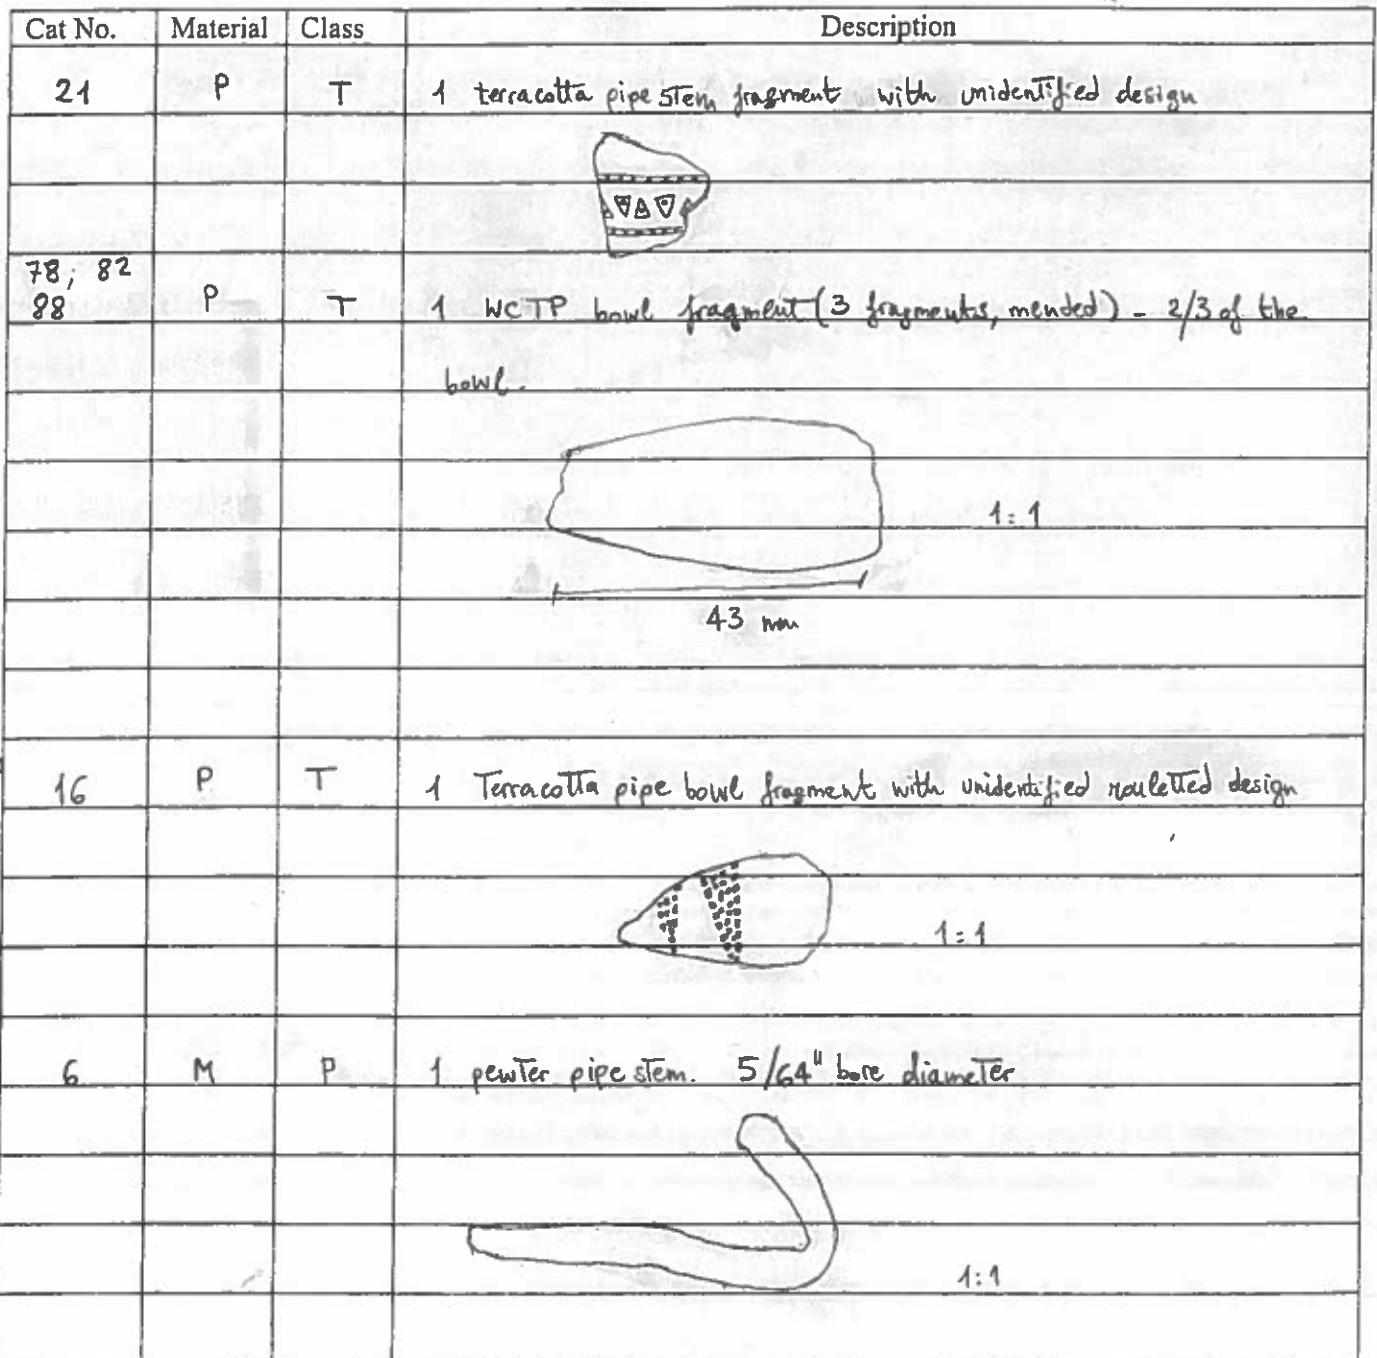 Cat No. Material Class Description
21 P T 1 terracotta pipe stem fragment with unidentified design
78; 82
88 P T 1 WCTP bowl fragment (3 fragments, mended) - 2/3 of the
bowl.
1:1
43 mm
16 P T 1 Terracotta pipe bowl fragment with unidentified rouletted design
1:1
6 M P 1 pewter pipe stem. 5/64" bore diameter
1:1